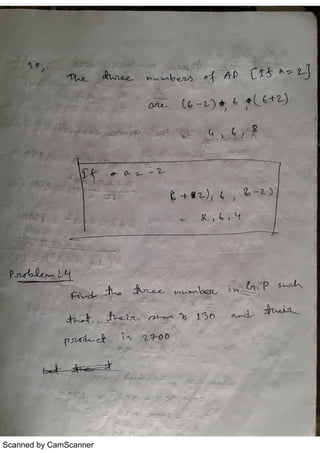 so,
The three numbers of AP [If a=2]
are (6-2), 6, (6+2)
4, 6, 8
If a = -2
6+2), 6, 6-2)
= 8, 6, 4
Problem 24
Find the three number in G.P such
that their sum is 130 and their
product is 2700
Scanned by CamScanner